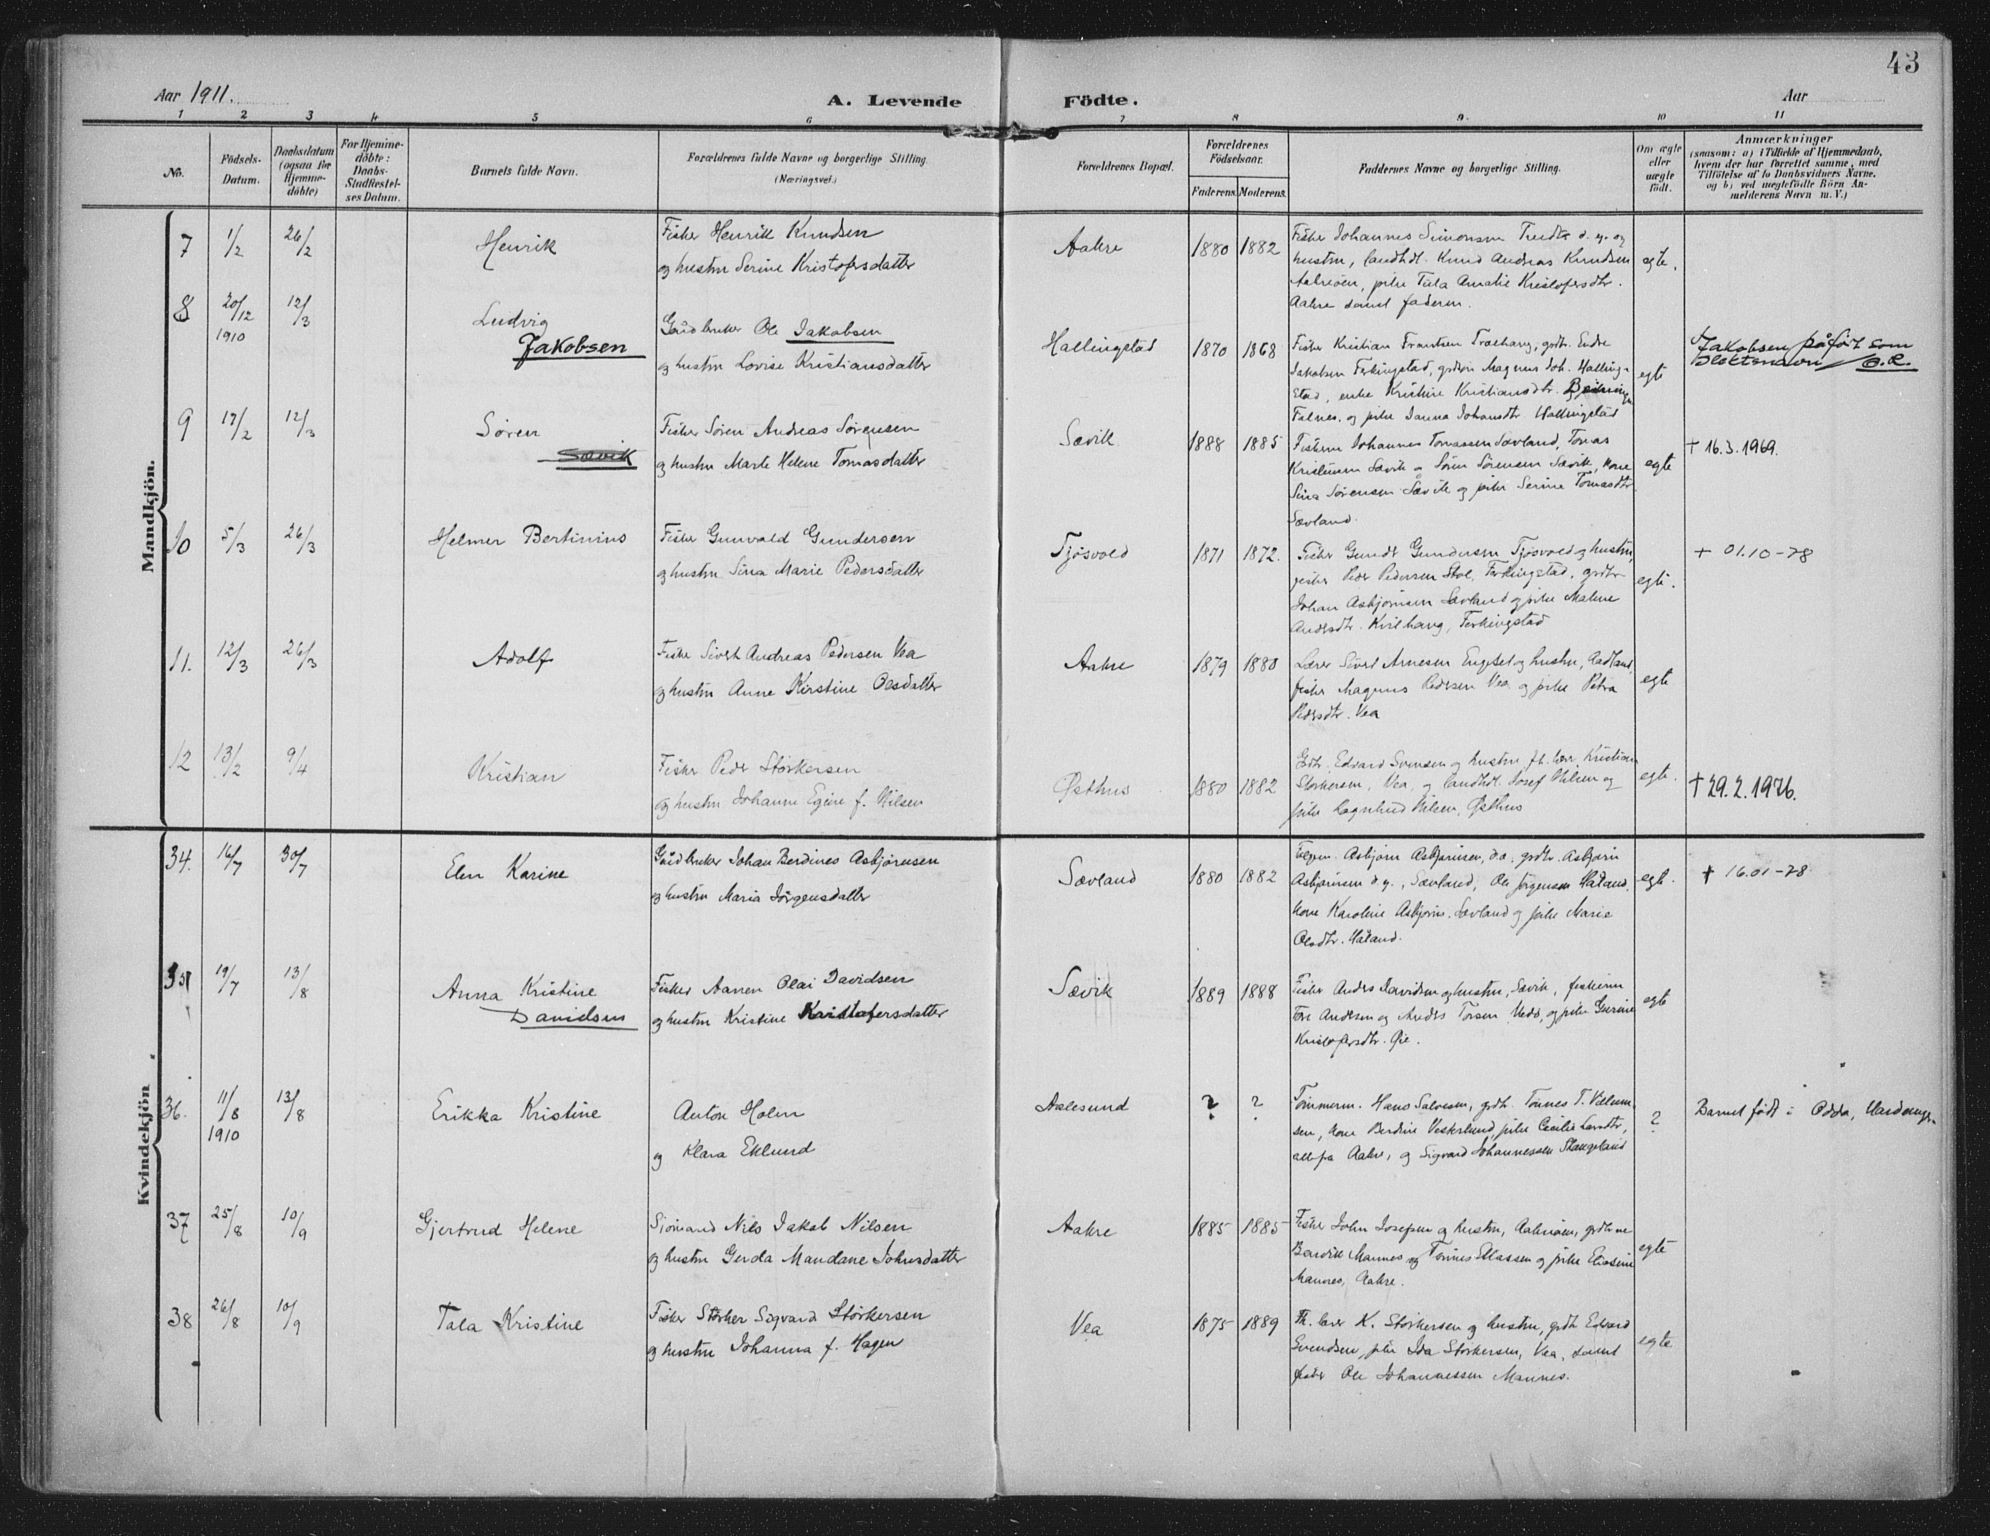 43
Aar 1911.
A. Levende Födte.
Aar
1 2 3 4 5 6 7 8 9 10 11
No.
Födsels-
Datum.
Daabsdatum
(ogsaa for
Hjemme-
døbte)
For Hjemme-
døbte:
Daabs-
Stadfæstel-
ses Datum.
Barnets fulde Navn.
Forældrenes fulde Navne og borgerlige Stilling
(Næringsvei.)
Forældrenes Bopæl.
Forældrenes
Födselsaar.
Faderens. Moderens.
Faddernes Navne og borgerlige Stilling.
Om ægte
eller
uægte
født.
Anmærkninger
(saasom: a) i Tilfælde af Hjemmedaab,
hvem der har forrettet samme, med
Tilföielse af to Daabsvidners Navne.
og b) ved uægtefödte Börn An-
melderens Navn m. V.)
Mandkjön.
7 1/2 26/2 Henrik
Fisker Henrik Knudsen
og hustru Serine Kristofersdatter
Aakre 1880 1882
Fisker Johannes Simonsen d. y. og
hustru, landhdl. Knud Andreas Knudsen
Aakreøen, pike Tala Amalie Kristofersdtr.
Aakre samt faderen.
egte.
8 20/12 1910 12/3 Ludvig
Jakobsen
Gaardbruker Ole Jakobsen
og hustru Lovise Kristiansdatter
Hallingstad 1870 1868
Fisker Kristian Frantsen Tralhaug, grdbr. Endre
Jakobsen Ferkingstad, Magnus Joh. Halling-
stad, enke Kristine Kristiansdtr.
Falnes. og pike Janna Johansdtr Hallingstad
egte
Jakobsen påført som
slektsnavn O.R.
9 17/2 12/3 Søren
Sævik
Fisker Søren Andreas Sørensen
og hustru Marte Helene Tomasdatter
Sævik 1888 1885
Fiskerne Johannes Tomassen Sævland, Tomas
Kristensen Sævik o Søren Sørensen Sævik, kone
Sina Sørensen Sævik og pike Serine Tomasdtr
Sævland.
egte
+ 16.3.1969.
10 5/3 26/3 Helmer Bertinius
Fisker Gunvald Gundersen
og hustru Sina Marie Pedersdatter
Tjøsvold 1871 1872.
Fisker Gunder Gundersen Tjøsvold og hustru,
fisker Peder Pedersen Stol, Ferkingstad, grdbr
Johan Asbjørnsen Sævland og pike Malene
Andersdtr. Kvilhaug, Ferkingstad
egte.
+ 01.10-78
11. 12/3 26/3 Adolf
Fisker Sivert Andreas Pedersen Vea
og hustru Anne Kirstine Olsdatter
Aakre 1879 1880
Lærer Sivert Arnesen Engeset og hustru, Aadland,
fisker Magnus Pedersen Vea og pike Petra
Pedersdtr. Vea
egte
12 13/2 9/4 Kristian
Fisker Peder Størkersen
og hustru Johanne Egine f. Nilsen
Østhus 1880 1882
Grdbr. Edvard Svensen og hustru fh. lærer Kristian
Størkersen, Vea, og landhdl. Josef Nilsen og
pike Nilsen, Østhus
egte.
+ 29.2.1976.
Kvindekjön
34. 16/7 30/7 Elen Karine
Gaardbruker Johan Berdines Asbjørnsen
og hustru Maria Jørgensdatter
Sævland 1880 1882
Asbjørn Asbjørnsen, d.æ. grdbr. Asbjørn
Asbjørnsen d.y., Sævland, Ole Jørgensen Haaland.
kone Karoline Asbjørns. Sævland og pike Marie
Olsdtr. Haaland.
egte.
+ 16.01-78
35 19/7 13/8 Anna Kristine
Davidsen
Fisker Aanen Olai Davidsen
og hustru Kristine Kristofersdatter
Sævik 1889 1888
Fisker Anders Davidsen og hustru, Sævik, fiskerne
Tore Andersen og Anders Torsen, og pike Gurine
Kristofersdtr. Øie.
egte
36. 11/8 1910 13/8 Erikka Kristine
Anton Holen
og Klara Eklund
Aalesund ? ?
Tømmerm. Hans Salvesen, grdb. Tønnes T. Villum-
sen, kone Berdine Vesterlund, pike Cecilie Larsdtr,
alle fra Aakre, og Sigvard Johannessen Stangeland
?
Barnet født i Odda, Hardanger.
37 25/8 10/9 Gjertrud Helene
Sjømand Nils Jakob Nilsen
og hustru Gerda Mandane Johnsdatter
Aakre 1885 1885
Fisker John Josefsen og hustru, Aakreøen, grdbrne
Bendik Mannes og Tønnes Eliassen og pike Eliasine
Mannes, Aakre.
egte
38 26/8 10/9 Tala Kristine
Fisker Størker Sigvard Størkersen
og hustru Johanna f. Hagen
Vea 1875 1889
Fh. lærer K. Størkersen og hustru, grdbr Edvard
Svendsen, pike Ida Størkersen, Vea, samt
fisker Ole Johannessen Mannes.
egte